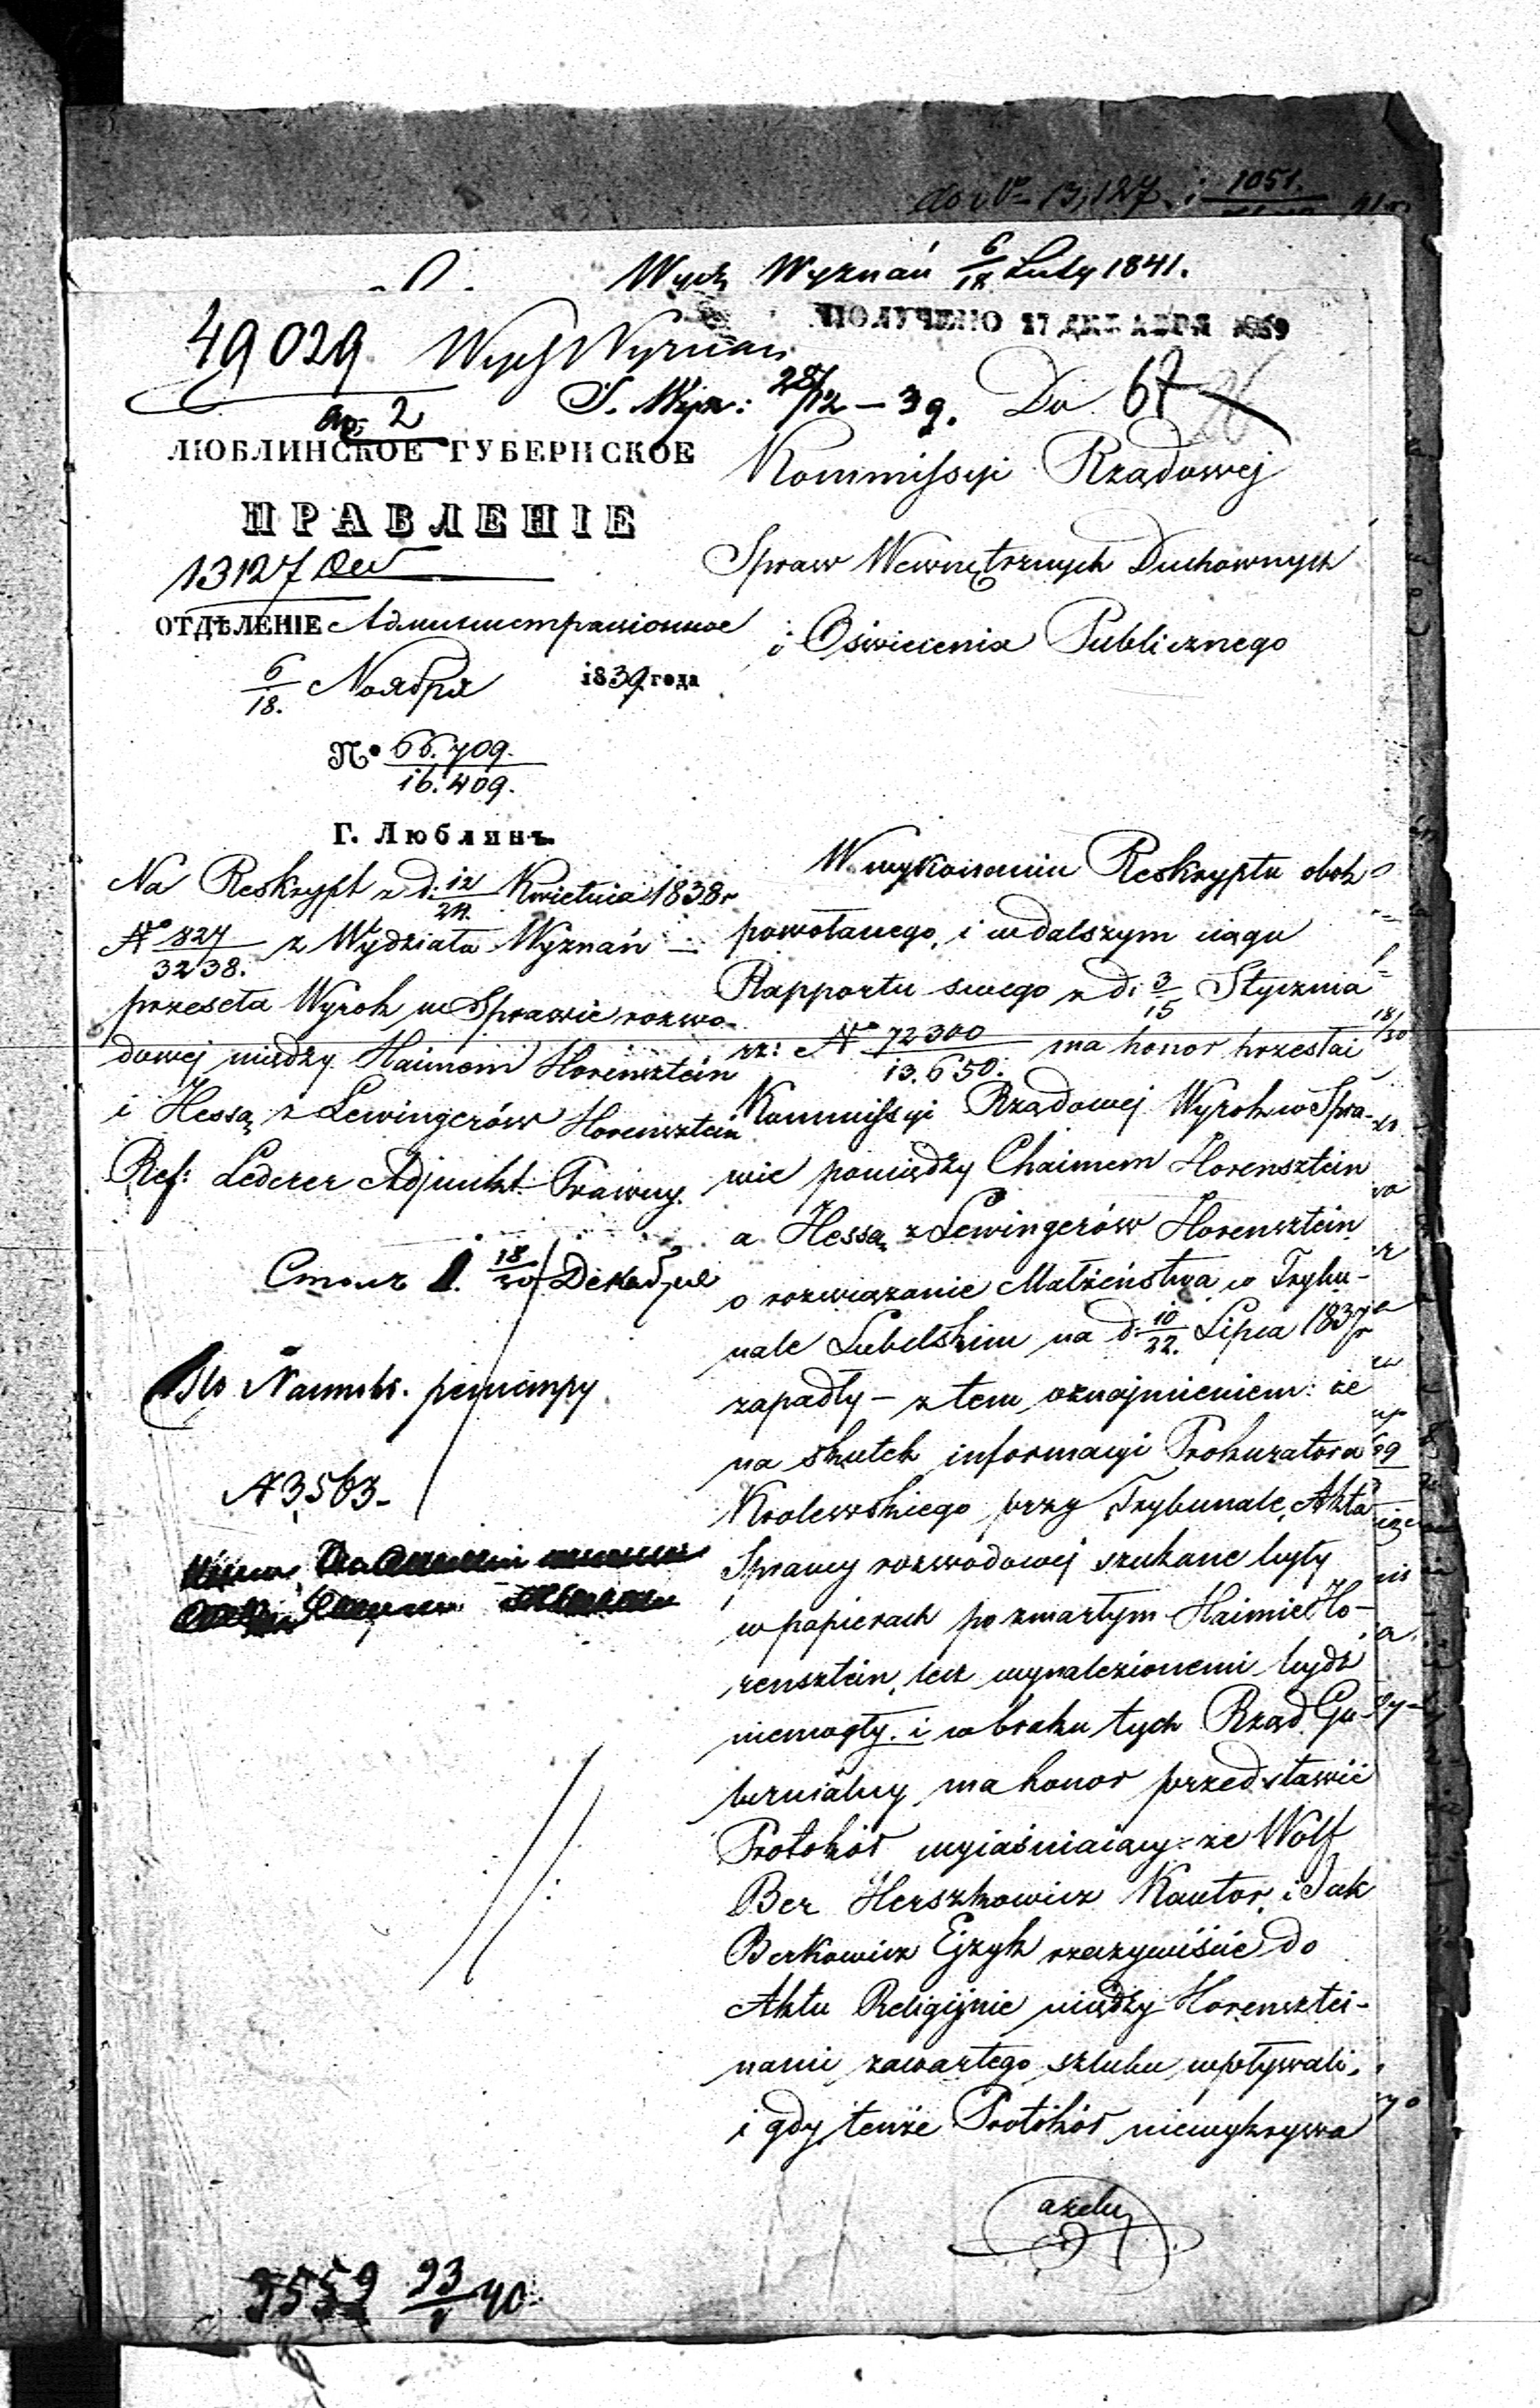 do No 13,127. i 1051.
Wydz Wyznań 6/18 Luty 1841.
49029. Wydz Wyznań
ПОЛУЧЕНО 27 ДЕКАБРЯ 1839
28/12 — 39. Do 67
2
ЛЮБЛИНСКОЕ ГУБЕРНСКОЕ
ПРАВЛЕНІЕ
13127
ОТДѢЛЕНІЕ Административное
6/18. Ноября 1839 года
N° 66.709./16.409.
Г. Люблинъ.
Kommissyi Rządowej
Spraw Wewnętrznych Duchownych
i Oświecenia Publicznego
Na Reskrypt z d. 12/24. Kwietnia 1838 r
No 827/3238. z Wydziału Wyznań —
przeseła Wyrok w Sprawie rozwo-
dowej między Haimem Horensztein
i Hessą z Lewingerów Horensztein
Ref: Lederer Adjunkt Prawny.
Столъ 1. 18/30 Декабря
N 3563-
W wykonaniu Reskryptu obok
powołanego, i w dalszym ciągu
Rapportu swego z d. 3/15 Stycznia
rz: No 72300/13.650. ma honor przesłać
Kommissyi Rządowej Wyrok w Spra-
wie pomiędzy Chaimem Horensztein
a Hessą z Lewingerów Horensztein
o rozwiązanie Małżeństwa w Trybu-
nale Lubelskim na d. 10/22. Lipca 1837 r
zapadły — z tem oznajmieniem: że
na skutek informacyi Prokuratora
Krolewskiego przy Trybunale, Akta
Sprawy rozwodowej szukane były
w papierach po zmarłym Haimie Ho-
rensztein, lecz wynalezionemi bydź
niemogły. i w braku tych Rząd Gu-
bernialny ma honor przedstawić
Protokół wyiaśniaiący że Wolf
Ber Herszkowicz Kantor, i Jak
Berkowicz Ejzyk rzeczywiście do
Aktu Religijnie między Horensztei-
nami zawartego szlubu wpływali,
i gdy tenże Protokół niewykrywa
ażeby
3552 23/40